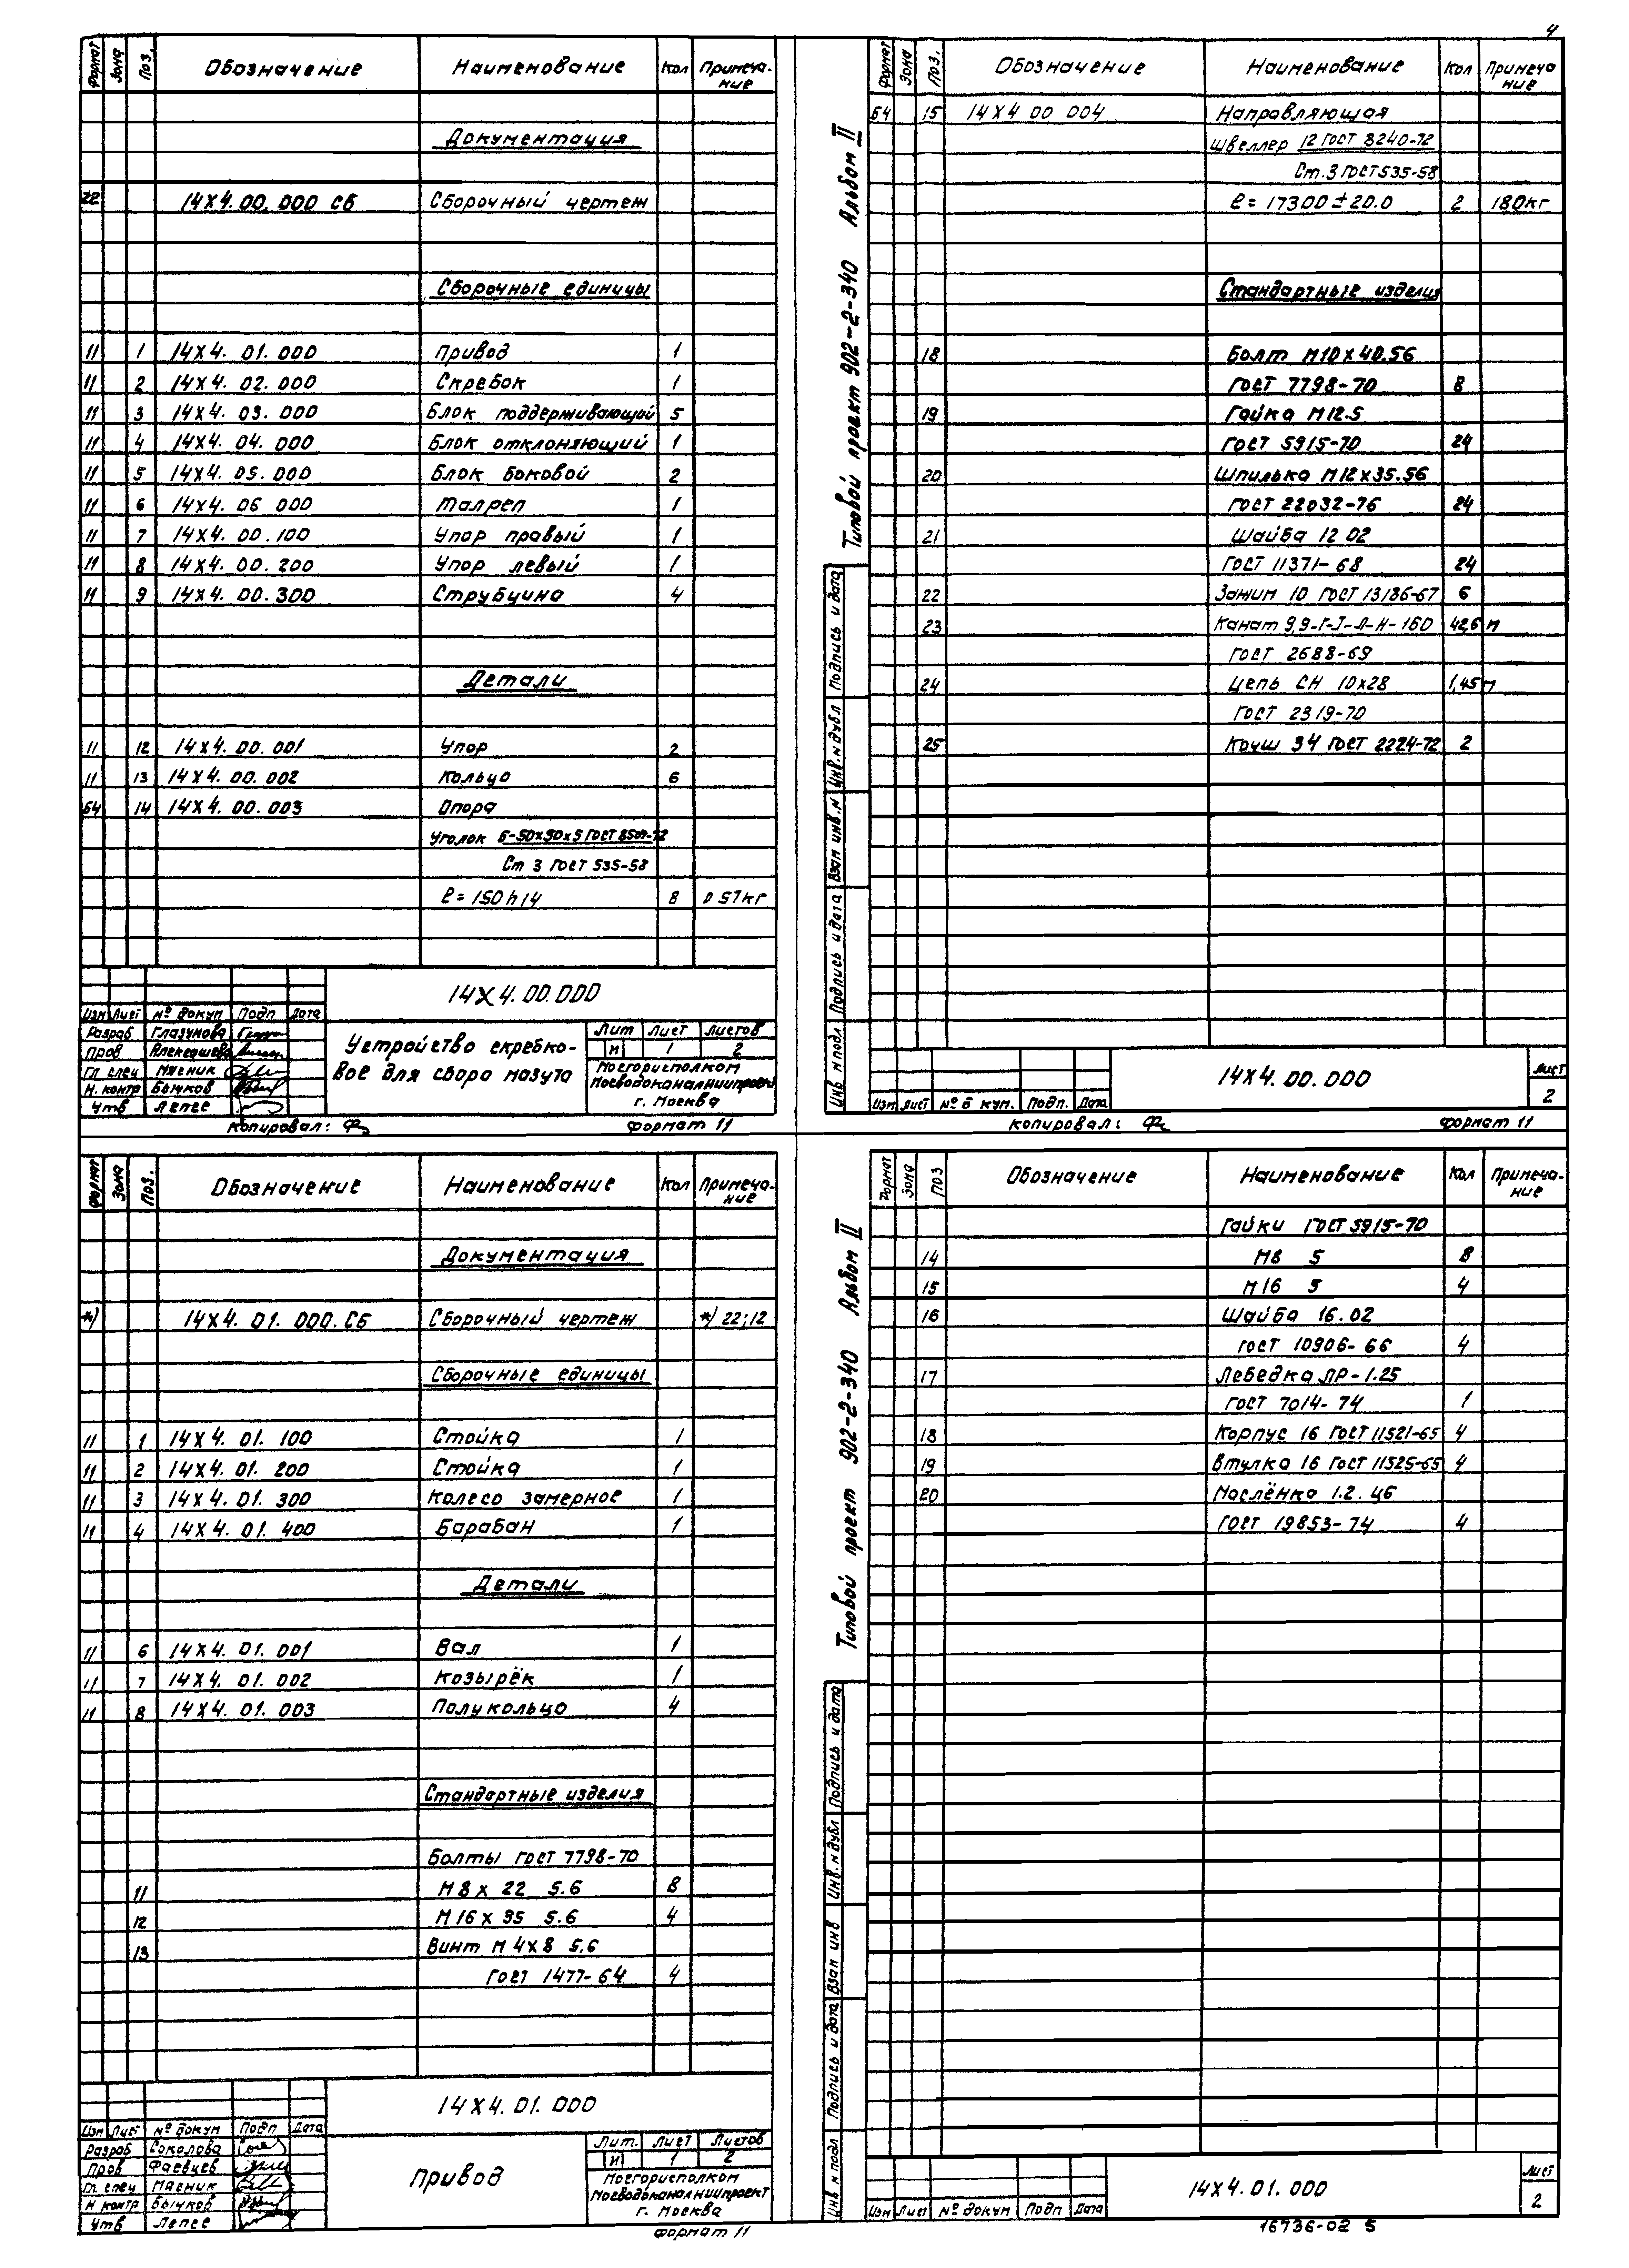 4
Формат Зона Поз. Обозначение Наименование Кол Примеча-
ние
Документация
22 14Х4.00.000 СБ Сборочный чертеж
Сборочные единицы
11 1 14Х4. 01. 000 Привод 1
11 2 14Х4. 02. 000 Скребок 1
11 3 14Х4. 03. 000 Блок поддерживающий 5
11 4 14Х4. 04. 000 Блок отклоняющий 1
11 5 14Х4. 05. 000 Блок боковой 2
11 6 14Х4. 06 000 Талреп 1
11 7 14Х4. 00. 100 Упор правый 1
11 8 14Х4. 00. 200 Упор левый 1
11 9 14Х4. 00. 300 Струбцина 4
Детали
11 12 14Х4. 00. 001 Упор 2
11 13 14Х4. 00. 002 Кольцо 6
БЧ 14 14Х4. 00. 003 Опора
Уголок Б-50х50х5 ГОСТ 8509-72
Ст 3 ГОСТ 535-58
ℓ = 150 h14 8 0 57кг
14Х4.00.000
Изм Лист № докум Подп Дата
Разраб Глазунова
Пров Алексашева
Гл спец Мясник
Н. контр Бычков
Утв Лепес
Устройство скребко-
вое для сбора мазута
Лит Лист Листов
И 1 2
Мосгорисполком
Мосводоканалниипроект
г. Москва
Копировал: Формат 11
Типовой проект 902-2-340 Альбом II
Формат Зона Поз. Обозначение Наименование Кол Примеча
ние
БЧ 15 14Х4 00 004 Направляющая
Швеллер 12 ГОСТ 8240-72
Ст. 3 ГОСТ 535-58
ℓ = 17300 ± 20.0 2 180кг
Стандартные изделия
18 Болт М10х40.56
ГОСТ 7798-70 8
19 Гайка М12.5
ГОСТ 5915-70 24
20 Шпилька М12х35.56
ГОСТ 22032-76 24
21 Шайба 12 02
ГОСТ 11371-68 24
22 Зажим 10 ГОСТ 13186-67 6
23 Канат 9,9-Г-I-Л-Н-160 42,6 м
ГОСТ 2688-69
24 Цепь СН 10х28 1,45 м
ГОСТ 2319-70
25 Коуш 34 ГОСТ 2224-72 2
Инв № подл Подпись и дата Взам инв. № Инв. № дубл Подпись и дата
Изм Лист № докум. Подп. Дата
14Х4. 00. 000
Лист
2
Копировал: Формат 11
Формат Зона Поз. Обозначение Наименование Кол Примеча-
ние
Документация
*) 14Х4. 01. 000. СБ Сборочный чертеж *) 22; 12
Сборочные единицы
11 1 14Х4. 01. 100 Стойка 1
11 2 14Х4. 01. 200 Стойка 1
11 3 14Х4. 01. 300 Колесо замерное 1
11 4 14Х4. 01. 400 Барабан 1
Детали
11 6 14Х4. 01. 001 Вал 1
11 7 14Х4. 01. 002 Козырёк 1
11 8 14Х4. 01. 003 Полукольцо 4
Стандартные изделия
Болты ГОСТ 7798-70
11 М8 х 22 5.6 8
12 М16 х 35 5.6 4
13 Винт М4х8 5.6
ГОСТ 1477-64 4
14Х4. 01. 000
Изм Лист № докум Подп Дата
Разраб Соколова
Пров Фаевцев
Гл. спец Мясник
Н контр Бычков
Утв Лепес
Привод
Лит. Лист Листов
И 1 2
Мосгорисполком
Мосводоканалниипроект
г. Москва
Формат 11
Типовой проект 902-2-340 Альбом II
Формат Зона Поз Обозначение Наименование Кол Примеча-
ние
Гайки ГОСТ 5915-70
14 М8 5 8
15 М16 5 4
16 Шайба 16.02
ГОСТ 10906-66 4
17 Лебедка ЛР-1.25
ГОСТ 7014-74 1
18 Корпус 16 ГОСТ 11521-65 4
19 Втулка 16 ГОСТ 11525-65 4
20 Маслёнка 1.2. Ц6
ГОСТ 19853-74 4
Инв № подл Подпись и дата Взам инв Инв. № дубл Подпись и дата
Изм Лист № докум Подп Дата
14Х4. 01. 000
Лист
2
16736-02 5